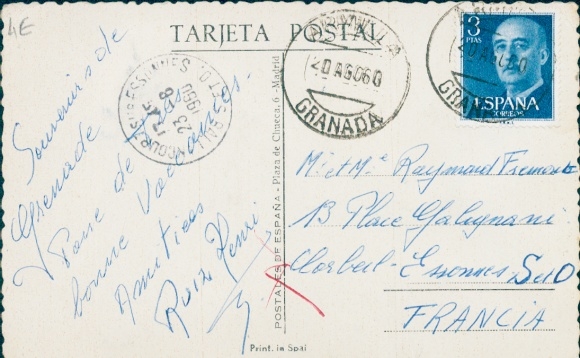 4E
TARJETA POSTAL
Souvenirs de
Grenade
Passe de
bonne Vacances
Amities
Ruiz Henri
POSTALES DE ESPAÑA - Plaza de Chueca, 6 - Madrid
Print. in Spai
20 AGO 60
GRANADA
23 8 1960
3
PTAS
ESPAÑA
CORREOS
GRANADA
Mr et Me Raymond Fremont
13 Place Galignani
Corbeil-Essonnes S et O
FRANCIA